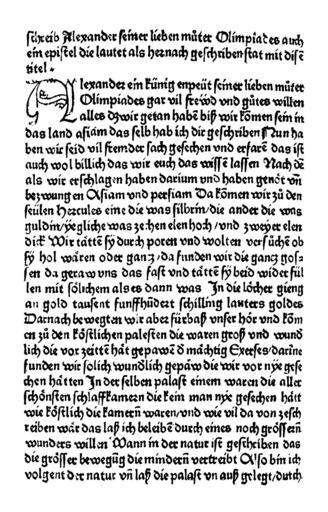 schreib Alexander seiner lieben můter Olimpiades auch
ein epistel die lautet als hernach geschriben stat mit disē
titel ·
Alexander ein künig enpeüt seiner lieben můter
Olimpiades gar vil frewd vnd gůtes willen
alles dz wir getan habē biß wir kōmen sein in
das land asiam das selb hab ich dir geschriben Nun ha
ben wir seid vil fremder sach gesehen vnd erfarē das ist
auch wol billich das wir euch das wissē lassen Nach dē
als wir erschlagen haben darium vnd haben genöt vn̄
bezwungen Asiam vnd persiam Da kōmen wir zů den
seülen Hercules eine die was silbrin/die ander die was
guldin/yegliche was zehen elen hoch/vnd zweyer elen
dick Wir tättē sy durch poren vnd wolten versůchē ob
sy hol wären oder gancz/da funden wir die gancz gos-
sen da geraw vns das fast vnd tättē sy beid wider fül
len mit sölichem als es dann was In die löcher gieng
an gold tausent funffhūdert schilling lauters goldes
Darnach bewegten wir aber fürbaß vnser hör vnd kōm
en zů den köstlichen palesten die waren groß vnd wund
lich die vor zeittē hat gepawē d mächtig Exerses/darīne
funden wir solich wundlich gepäw die wir vor nye gese
chen hätten In der selben palast einem waren die aller
schönsten schlaffkamern die kein man nye gesehen hätt
wie köstlich die kamern waren/vnd wie vil da von ze sch
reiben wär das laß ich beleibē durch eines noch grössern
wunders willen Wann in der natur ist geschriben das
die grösser bewegūg die mindern vertreibt Also bin ich
volgent der natur vn̄ laß die palast vn auß gelegt/durch